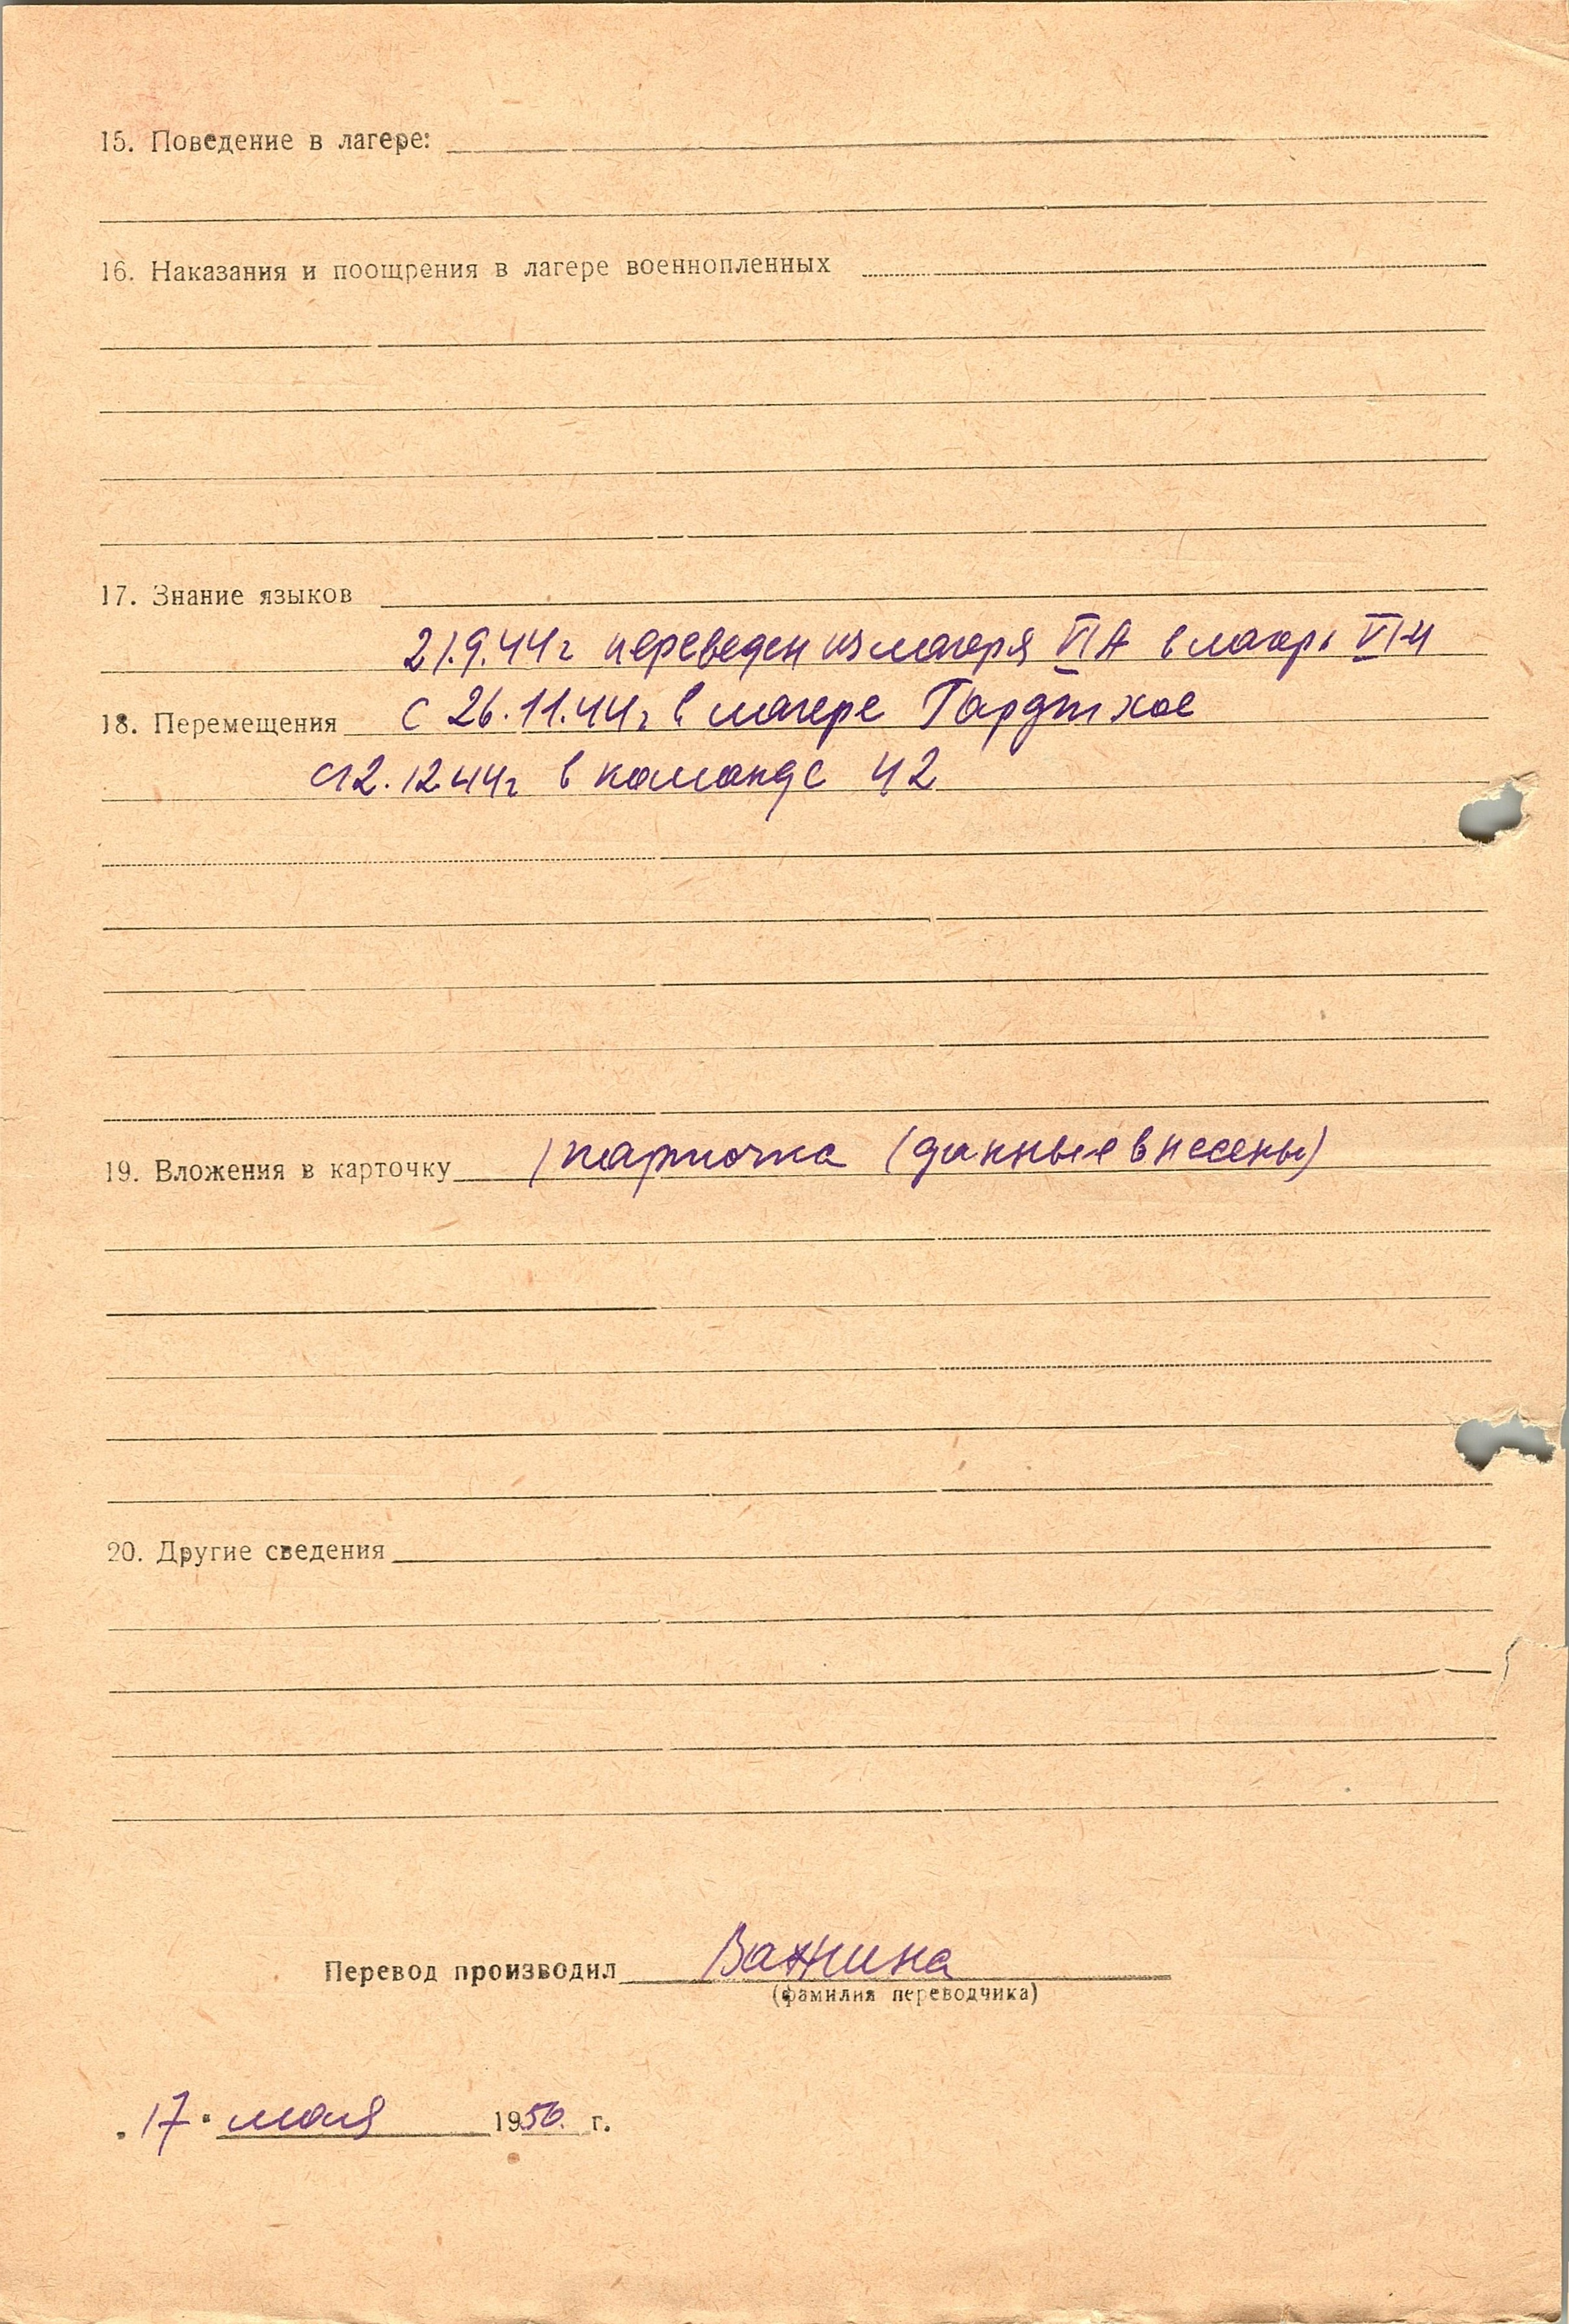 15. Поведение в лагере:
16. Наказания и поощрения в лагере военнопленных
17. Знание языков
21.9.44г переведен из лагеря VI А в лагерь VI
18. Перемещения с 26.11.44г в лагере
с 12.12.44г в команде
19. Вложения в карточку 1 карточка (данные внесены)
20. Другие сведения
Перевод производил Важнина
(фамилия переводчика)
„17" мая 1950. г.